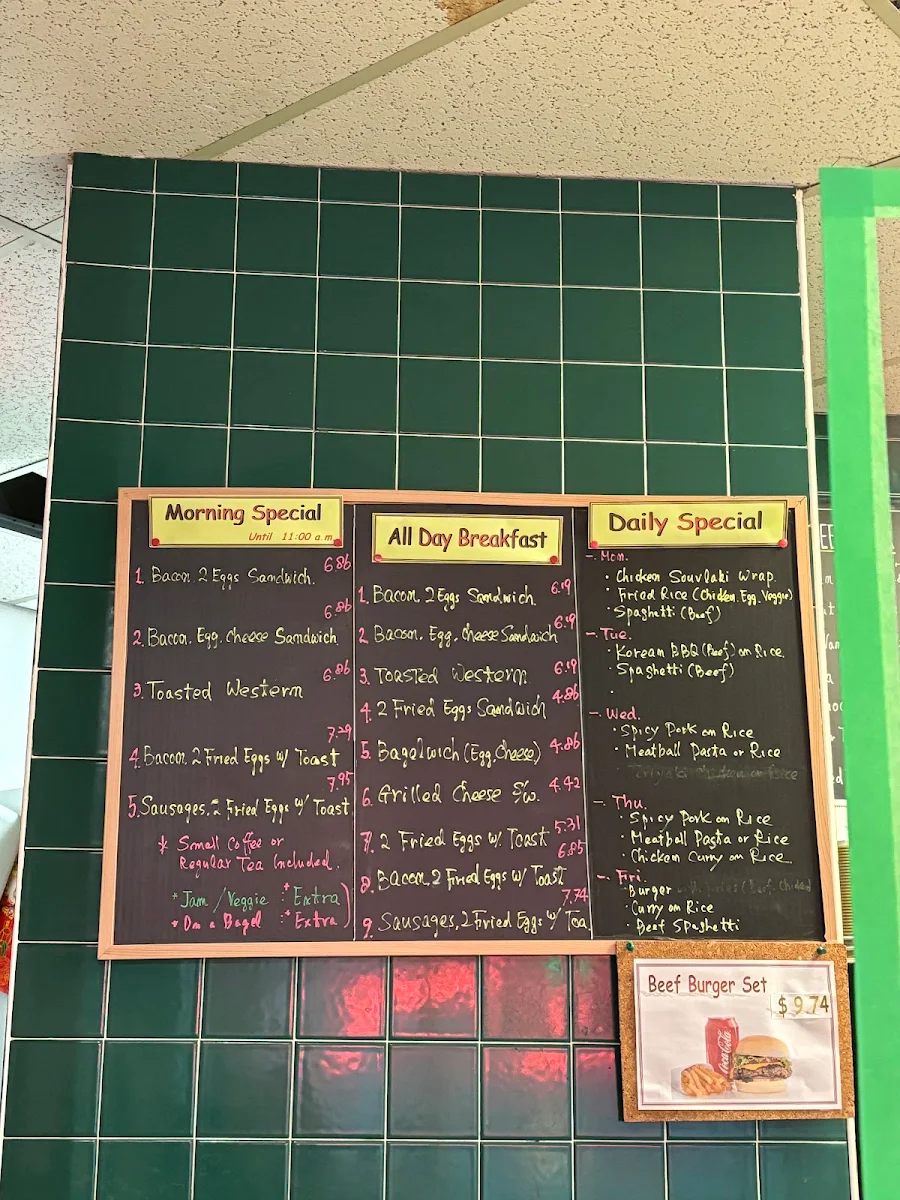 Morning Special
Until 11:00 a.m
1. Bacon 2 Eggs Sandwich. 6.86
2. Bacon. Egg. Cheese Sandwich 6.86
3. Toasted Western 6.86
4. Bacon. 2 Fried Eggs w/ Toast 7.29
5. Sausages. 2 Fried Eggs w/ Toast 7.95
* Small Coffee or
Regular Tea Included.
* Jam / Veggie : * Extra
* On a Bagel : * Extra
All Day Breakfast
1. Bacon. 2 Eggs Sandwich. 6.19
2 Bacon. Egg. Cheese Sandwich 6.19
3. Toasted Western 6.19
4. 2 Fried Eggs Sandwich 4.86
5. Bagelwich (Egg. Cheese) 4.86
6. Grilled Cheese S/w. 4.42
7. 2 Fried Eggs w/ Toast 5.31
8. Bacon. 2 Fried Eggs w/ Toast 6.85
9. Sausages, 2 Fried Eggs w/ Toa 7.74
Daily Special
- Mon.
• Chicken Souvlaki Wrap.
• Fried Rice (Chicken. Egg. Veggie)
• Spaghetti (Beef)
- Tue.
• Korean BBQ (Beef) on Rice
• Spaghetti (Beef)
- Wed.
• Spicy Pork on Rice
• Meatball Pasta or Rice
- Thu.
• Spicy Pork on Rice
• Meatball Pasta or Rice
• Chicken Curry on Rice
- Fri.
• Burger
• Curry on Rice
• Beef Spaghetti
Beef Burger Set
$ 9.74
Coca-Cola